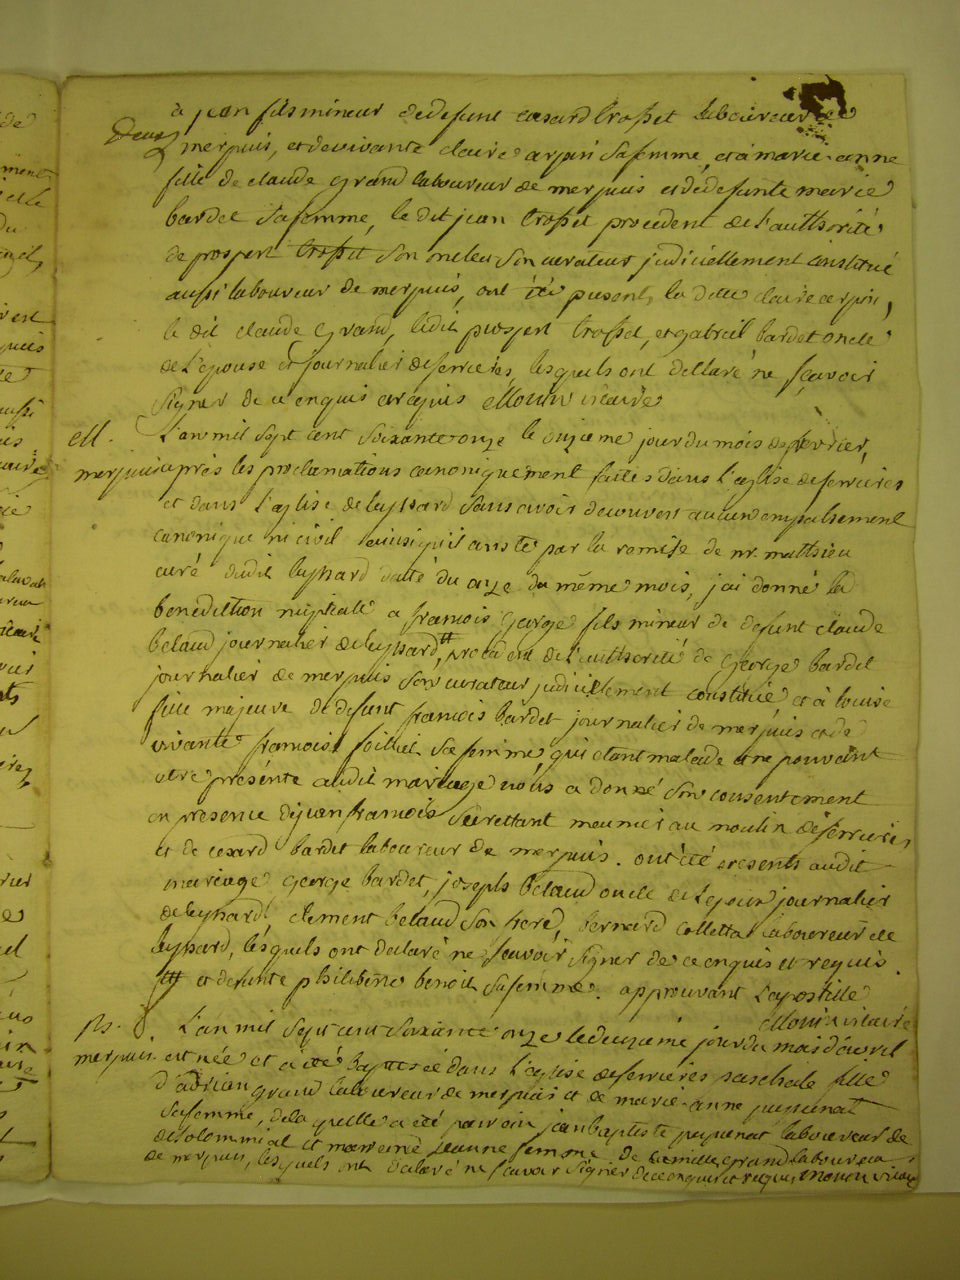 à jean fils mineur de defunt cesard trosset laboureur de
merpuis, et de vivante claire arpin sa femme, et à marie-anne
fille de claude grand laboureur de merpuis et de defunte marie
bardet sa femme, le dit jean trosset procedent de l'authorité
de prospert trosset son oncle son curateur judiciellement constitué
aussi laboureur de merpuis, ont été presents la dette claire arpin,
le dit claude grand, ledit prospert trosset, et gabriel bardet oncle
de l'epouse et journalier de serrieres, lesquels ont déclaré ne sçavoir
signer de ce enquis et requis Monin vicaire
M. L'an mil sept cent soixante onze le onzieme jour du mois de fevrier,
merpuis après les proclamations canoniquement faites dans l'eglise de serrieres
et dans l'eglise de leyssard sans avoir decouvert aucun empaschement
canonique ni civil ainsi qu'il conste par la remise de mr. matthieu
curé dudit leyssard datté du onze du même mois, j'ai donné la
benediction nuptiale a francois george fils mineur de defunt claude
belaud journalier de leyssard # procedent de l'authorité de george bardet
journalier de merpuis son curateur judiciellement constitué et à louise
fille majeure de defunt francois bardet journalier de merpuis et de
vivante francoise sa femme, qui etant malade et ne pouvant
etre présente audit mariage nous a donné son consentement
en presence de jean francois meunier au moulin de serrieres
et de cesard bardet laboureur de merpuis. ont été presents audit
mariage george bardet, joseph belaud oncle de l'epoux journalier
de leyssard, clement belaud son frere, bernard colletta laboureur de
leyssard, lesquels ont declaré ne sçavoir signer de ce enquis et requis.
# et defunte philiberte benoit sa femme. approuvant l'apostille
Monin vicaire
L'an mil sept cent soixante onze le deuzieme jour du mois d'avril
merpuis. est née et a été baptisée dans l'eglise de serrieres paschale fille
d'adrian grand laboureur de merpuis et de marie-anne
sa femme, de laquelle a été parrain jean baptiste laboureur de
de solommiat et marreine jeanne femme de camille grand laboureur
de merpuis, lesquels ont declaré ne sçavoir signer de ce enquis et requis Monin vicaire